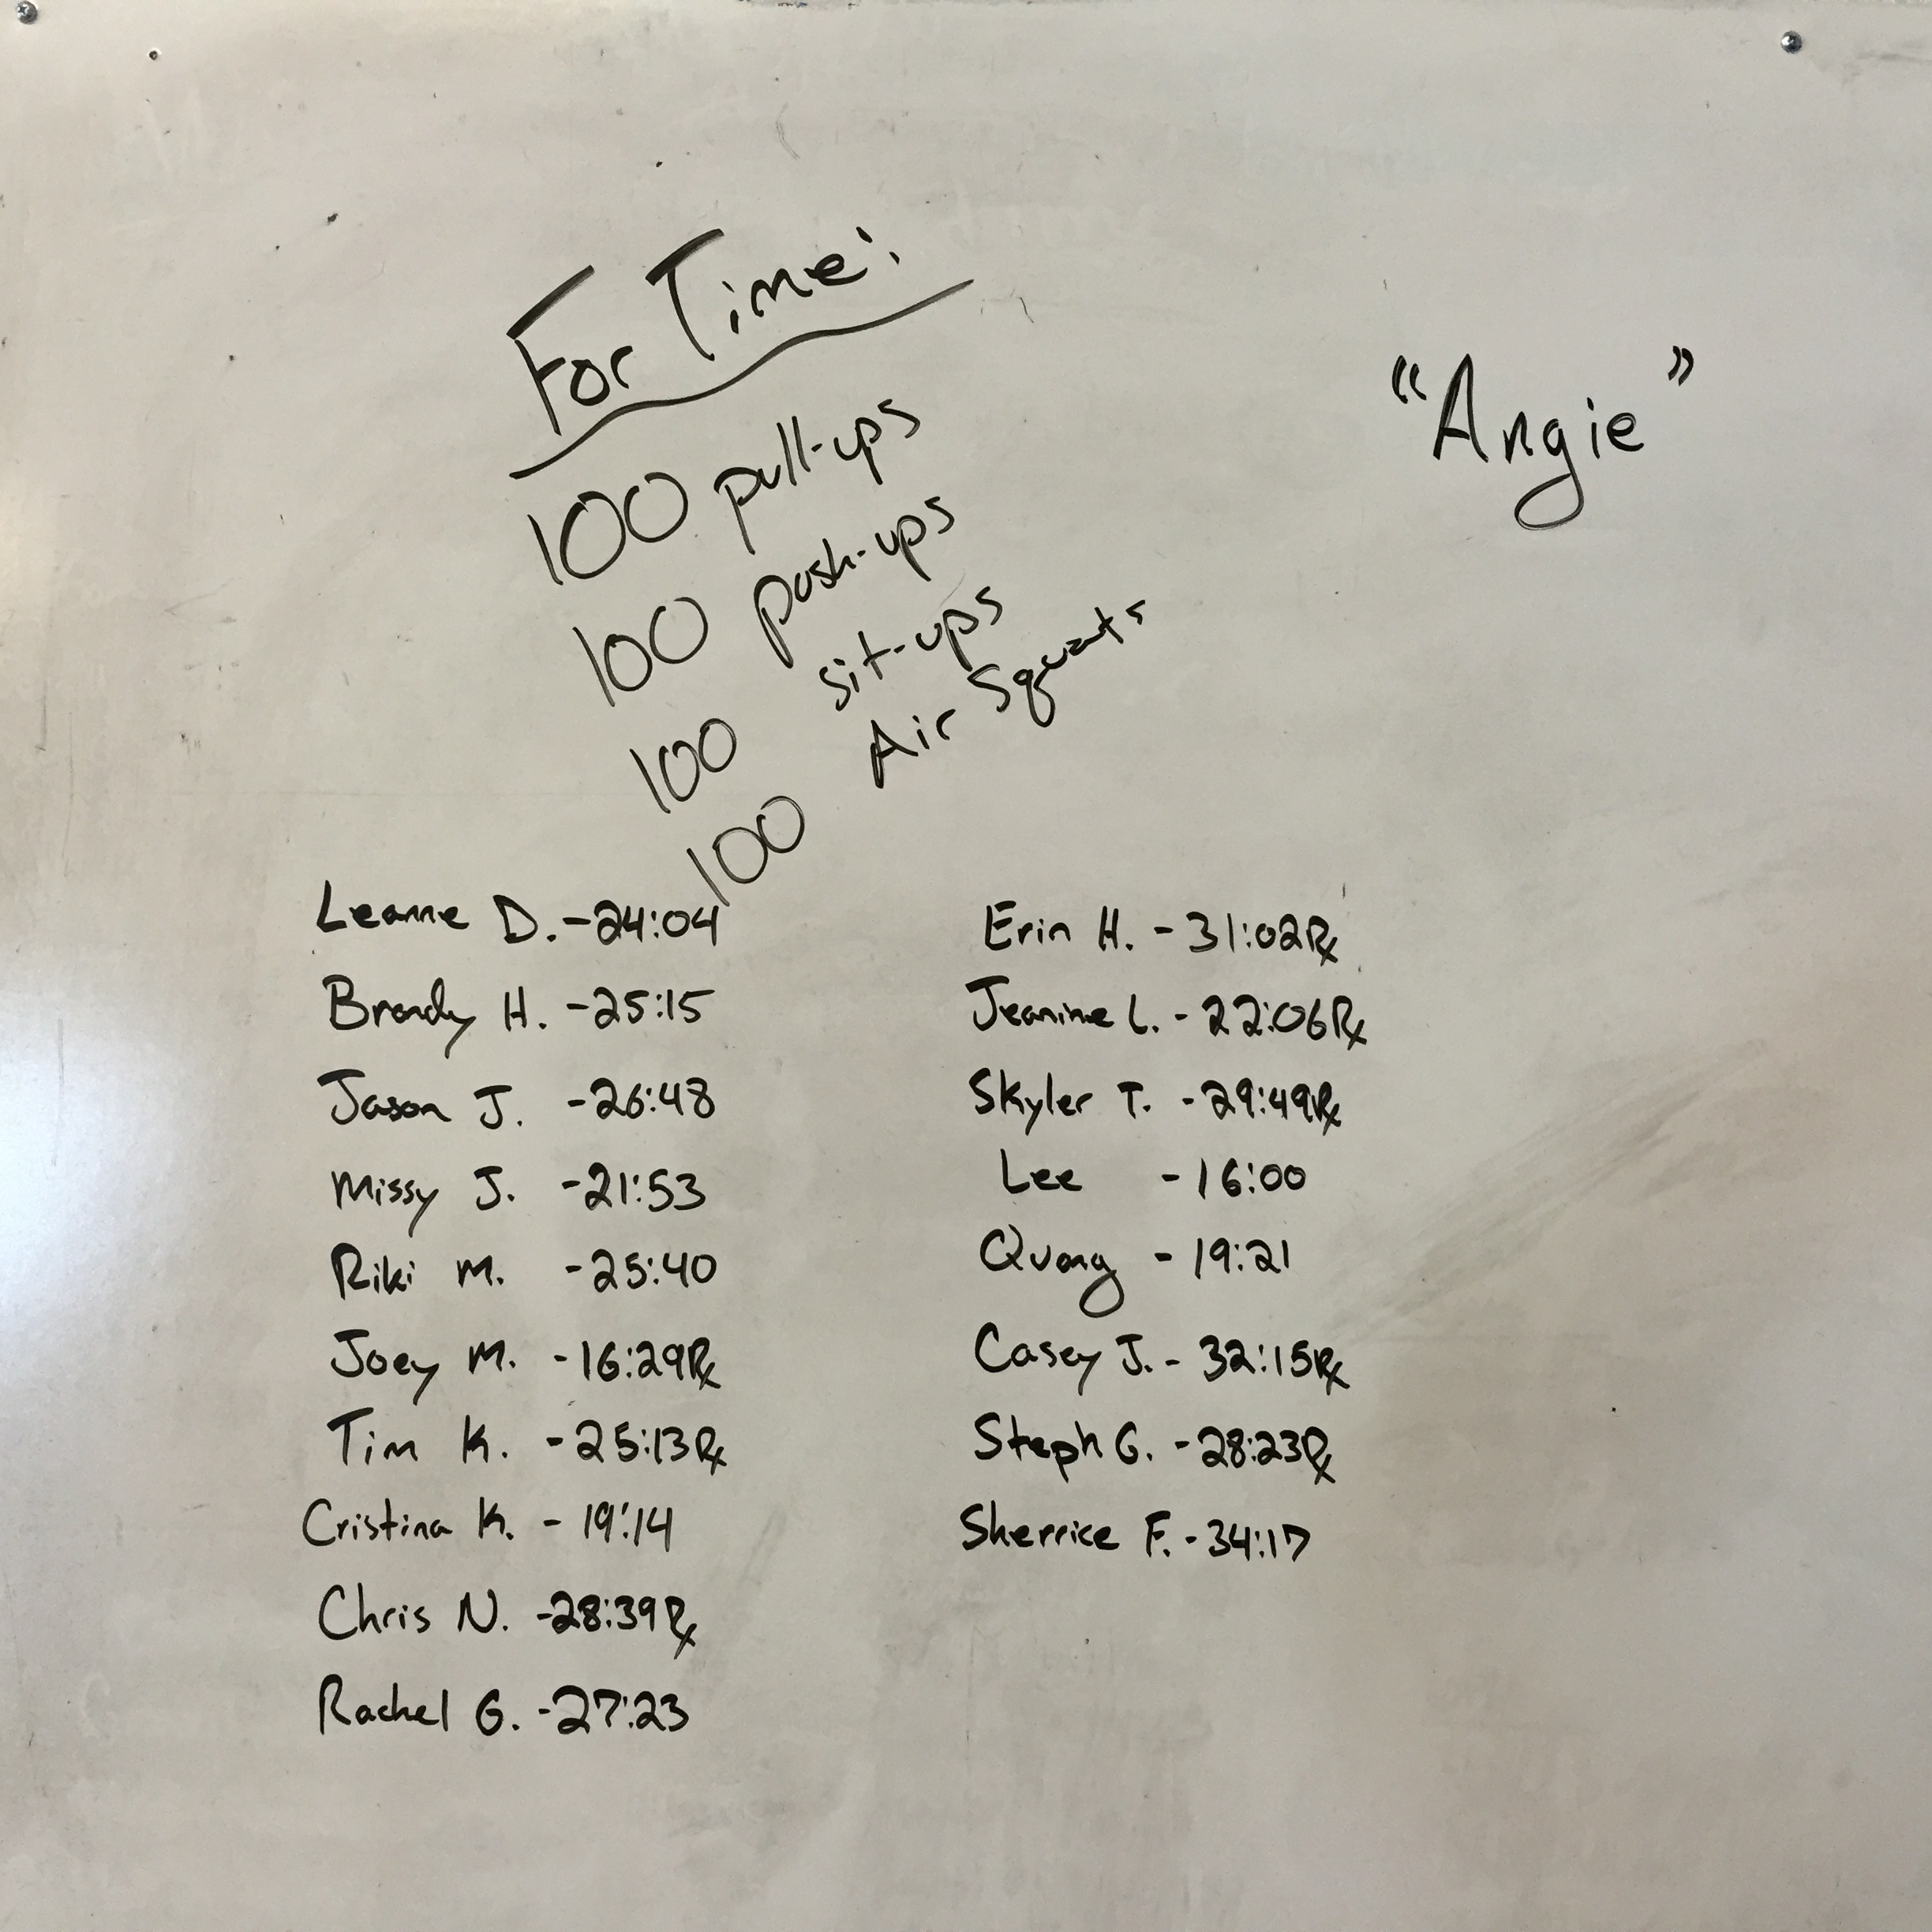 For Time:
"Angie"
100 pull-ups
100 push-ups
100 sit-ups
100 Air Squats
Leanne D. - 24:04
Brandy H. - 25:15
Jason J. - 26:48
Missy J. - 21:53
Riki M. - 25:40
Joey M. - 16:29 Rx
Tim K. - 25:13 Rx
Cristina K. - 19:14
Chris N. - 28:39 Rx
Rachel G. - 27:23
Erin H. - 31:02 Rx
Jeanine L. - 22:06 Rx
Skyler T. - 29:49 Rx
Lee - 16:00
Quang - 19:21
Casey J. - 32:15 Rx
Steph G. - 28:23 Rx
Sherrice F. - 34:17